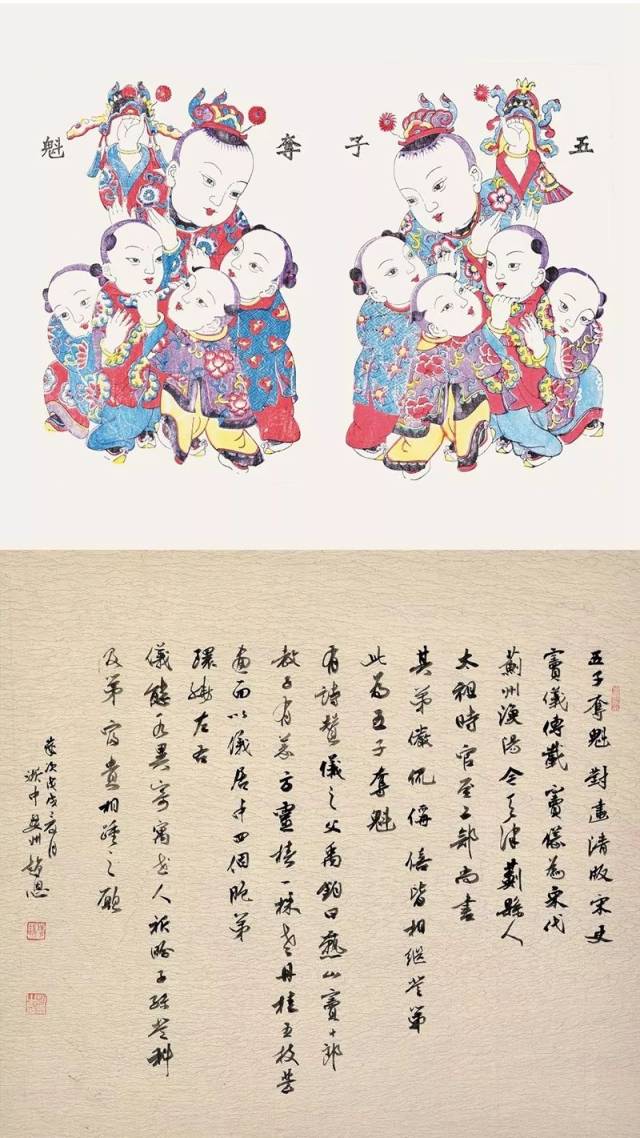 五子奪魁
五子奪魁 對畫清版宋史
竇儀傳載 竇儀為宋代
薊州漁陽 今天津薊縣人
太祖時官至工部尚書
其弟儼侃偁僖皆相繼登第
此為五子奪魁
有詩贊儀之父禹鈞曰燕山竇十郎
教子有義方靈椿一株老丹桂五枝芳
畫面以儀居中四個胞弟
環繞左右
儀態各異寄寓世人祈盼子孫登科
及第富貴相踵之願
歲次戊戌月
浙中婺州